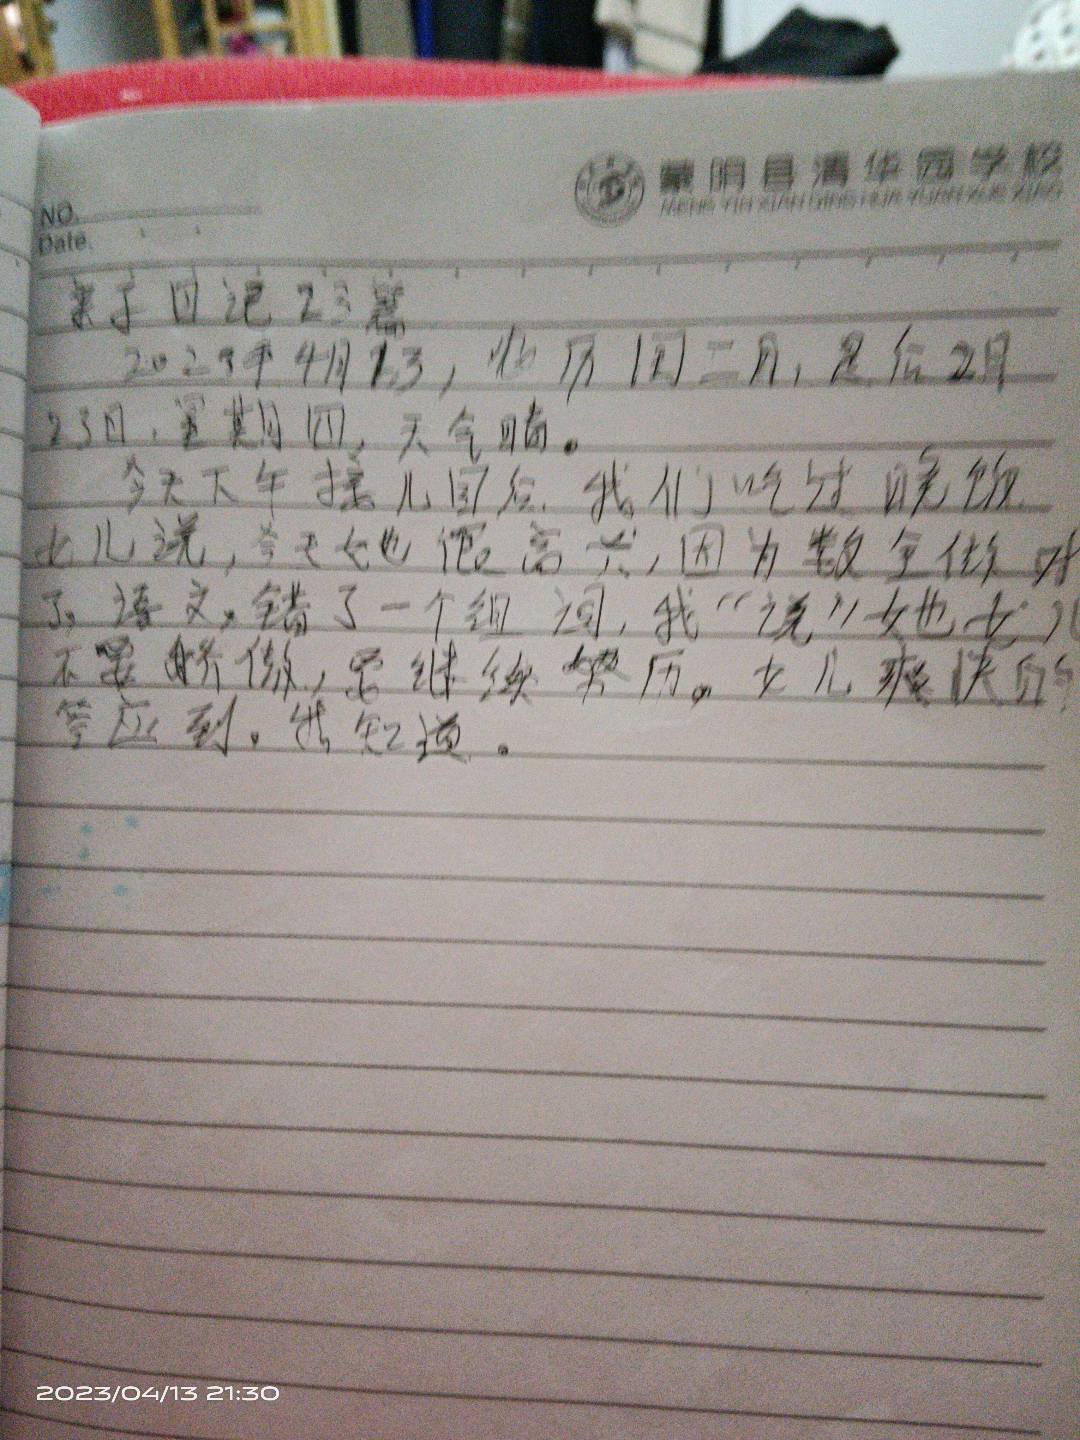 蒙阴县清华园学校
MENG YIN XIAN QING HUA YUAN XUE XIAO
NO.
Date.
亲子日记23篇
2023年4月13, 农历闰二月, 是后2月
23日, 星期四, 天气晴。
今天下午接儿回后 我们吃过晚饭
女儿说, 今天她很高兴, 因为数全做对
了, 语文, 错了一个组词, 我“说”她女儿
不要骄傲, 要继续努历。女儿爽快的
答应到。我知道。
2023/04/13 21:30